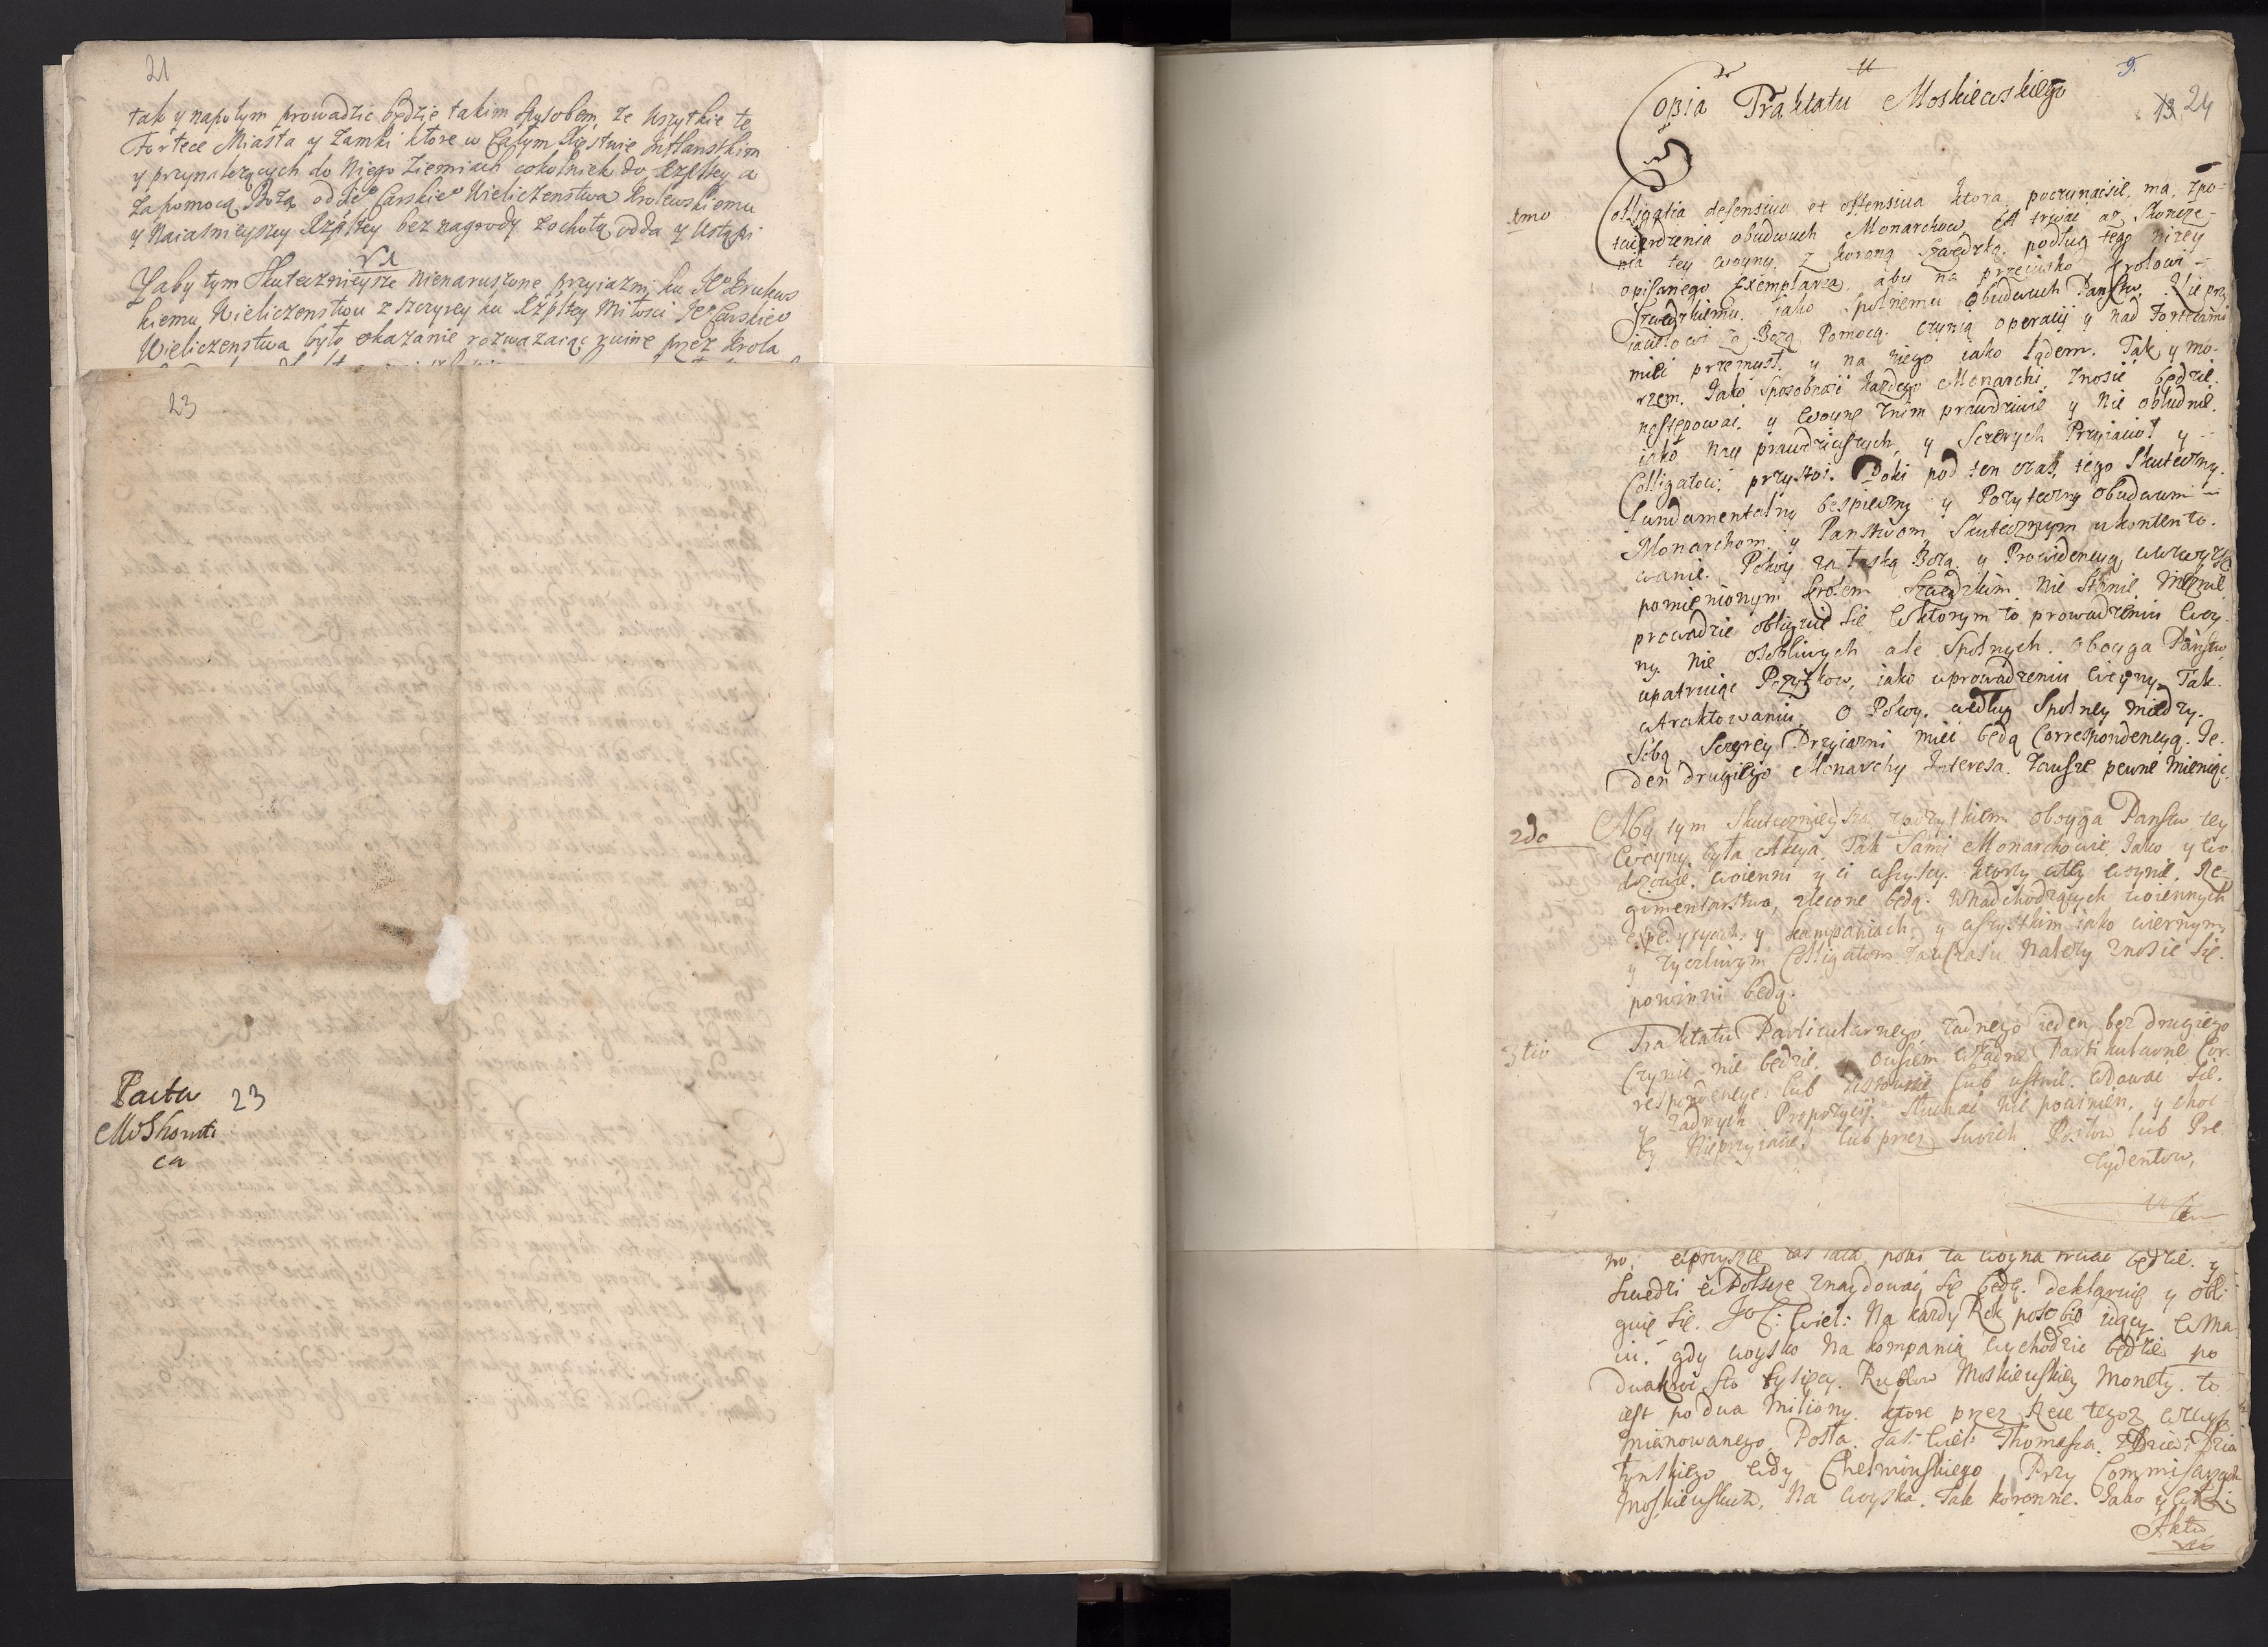 21
tak y napotym prowadzic będzie takim sposobem, ze wszytkie te
Fortece Miasta y Zamki ktore w całym Xięstwie Inflanskim
y przynalezących do Niego Ziemiach cokolwiek do Rzpltey a
za pomocą Bozą od Je° Carskie° Wieliczenstwa Krolewskiemu
y Naiasnieyszey Rzpltey bez nagrody zochotą odda y ustąpi
VI
Zaby tym skutecznieysze nienaruszone przyiazni ku Je° Krolews
kiemu Wieliczenstwu z szczyrey ku Rzpltey Miłosci Je° Carskie°
Wieliczenstwa było okazanie rozwazaiąc ruine przez Krola
23
Pacta 23
Moskowiti
ca
9.
13 24
Copia Traktatu Moskiewskiego
1mo
Colligatia defensiva et offensiva ktora poczynac sie ma, z po-
twierdzenia obudwuch Monarchow, trwac az skoncze-
nia tey woyny z Koroną Szwedzką. podług tego nizey
opisanego Exemplarza, aby na przeciwko Krolowi
Szwedzkiemu. iako spolnemu obudwuch Panstw Nieprzy
iacielowi za Bozą Pomocą. czynią operacij y nad Fortecami
mieć przemysł. y na niego iako lądem. Tak y mo-
rzem. Jako sposobnosć kazdego Monarchi znosić będzie.
następowac. y woynę znim prawdziwie y nie obłudnie.
iako nay prawdziwszych, y Sczerych Przyiacioł y
Colligatow, przystoi. Poki pod ten czas, tego skuteczny.
fundamentalny bespieczny y Pozyteczny obudwum
Monarchom y Panstwom Skutecznym ukontento-
wanie. Pokoy za łaską Bozą. y Prowidencyą wzwysz
pomienionym Krolem Szwedzkim nie stanie, męznie
prowadzic obliguie się. W ktorym to prowadzeniu woy-
ny. nie osobliwych ale Spolnych. oboyga Państw,
upatruiąc Pozytkow, iako w prowadzeniu woyny, Tak.
w traktowaniu, o Pokoy. według Spolney miedzy.
sobą Sczyrey Przyiazni mieć będą Correspondencyą. Je-
den drugiego Monarchy Interesa. zawsze pewne mieniąc.
2do
Aby tym skutecznieysza z pozytkiem oboyga Panstw tey
woyny była akcya. Tak Sami Monarchowie. Jako y wo
dzowie. woienni y ci wszyscy. ktorzy tey woynie. Re-
gimentarstwa, zlecone będą. W nadchodzących woiennych
Expedycyach. y kampaniach, y wszystkim iako wiernym
y zyczliwym Colligatom zawczasu. nalezy znosic się.
powinni będą.
3tio
Traktatu Particularnego zadnego ieden bez drugiego
czynić nie będzie. y owszem w zadne Partikularne Cor-
respondencye. lub listownie lub ustnie. wdawac się.
y zadnych Propozycij. słuchać nie powinien, y choc-
by Nieprzyiaciel lub przez Swoich Posłow, lub Re-
zydentow,
no, w przyszłe zas lata, poki ta woyna trwac będzie. y
Szwedzi w Polszcze znaydowac się będą. deklaruie y obli
guie się. J C: Wiel: Na kazdy Rok posobie idący w Ma-
iu. gdy woysko na kompanią wychodzic będzie, po
dwakroc sto tysięcy. Rublow Moskiewskiey monety. to
iest po dwa miliony. ktore przez Rece tegoz wzwysz
mianowanego Posła. Jas: Wiel: Thomasza. Dzia
łynskiego wdy Chełminskiego Przy Commisarzach
Moskiewskich, na woyska. Tak koronne. Jako y Lit: